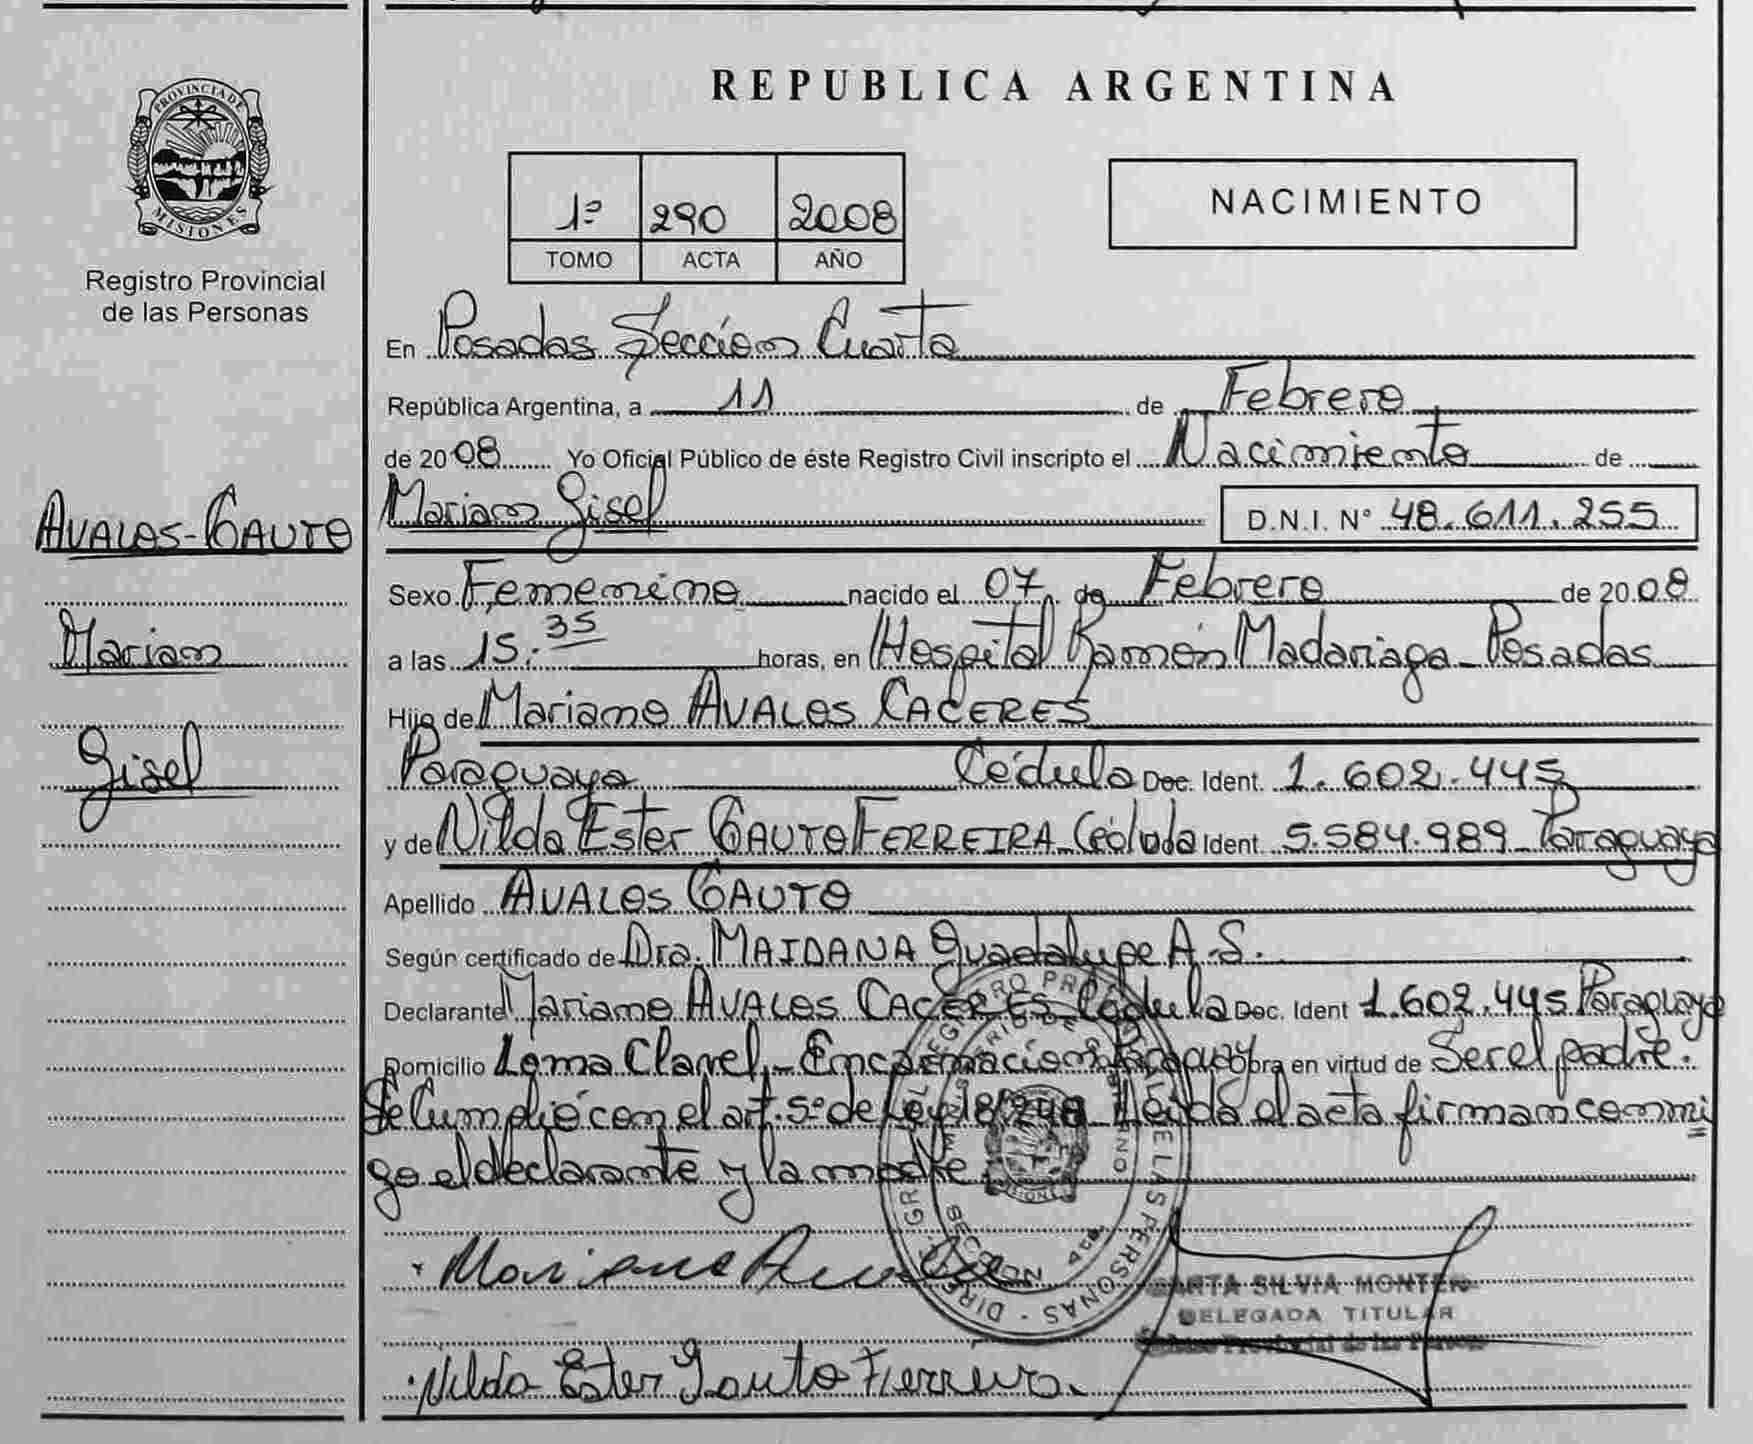 PROVINCIA DE
MISIONES
Registro Provincial
de las Personas
AVALOS-GAUTO
Mariam
Gisel
REPUBLICA ARGENTINA
1º 290 2008
TOMO ACTA AÑO
NACIMIENTO
En Posadas Sección Cuarta
República Argentina, a 11 de Febrero
de 2008 Yo Oficial Público de éste Registro Civil inscripto el Nacimiento de
Mariam Gisel D.N.I. N° 48.611.255
Sexo Femenino nacido el 07 de Febrero de 2008
a las 15:35 horas, en Hospital Ramón Madariaga - Posadas
Hijo de Mariano AVALOS CACERES
Paraguaya Cédula Doc. Ident. 1.602.445
y de Nilda Ester GAUTO FERREIRA - Cédula Ident. 5.584.989 - Paraguaya
Apellido AVALOS GAUTO
Según certificado de Dra. MAIDANA Guadalupe A. S.
Declarante Mariano AVALOS CACERES Cédula Doc. Ident 1.602.445 Paraguaya
Domicilio Loma Clavel - Encarnación Paraguay Obra en virtud de Ser el padre.
Se Cumplió con el art. 5º de Ley 18.248 Leída el acta firman conmi
go el declarante y la madre.
Mariano
Nilda Ester Gauto Ferreira.
SILVIA
DELEGADA TITULAR